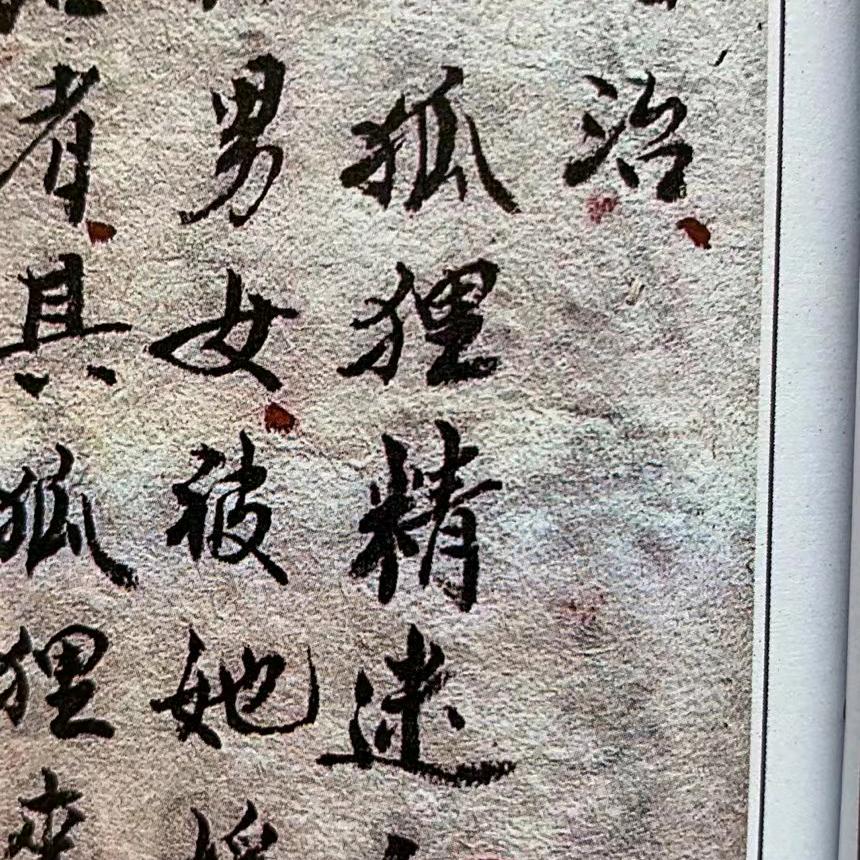 治
狐狸精迷
男女被她
者具狐狸來